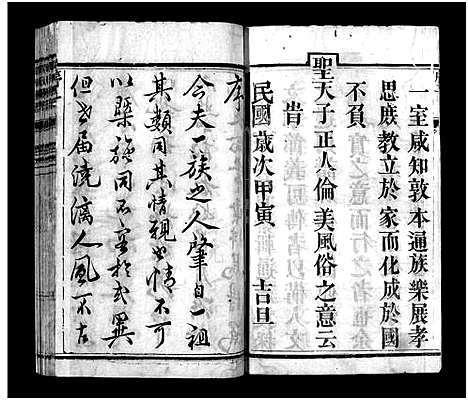 一室咸知敦本遍族樂展孝
思庶教立於家而化成於國
不負
聖天子正人倫美風俗之意云
旹
民國歲次甲寅 吉旦
序
今夫一族之人肇自一祖
其類同其情親也情不可
以槩施同不至於或異
但世届澆漓人風不古